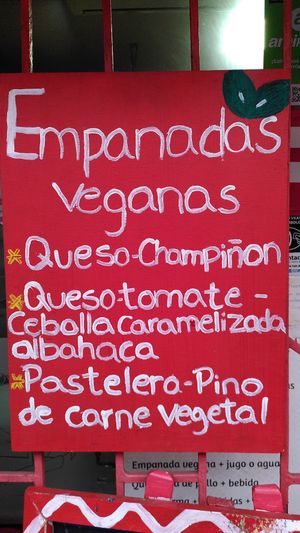 Empanadas
veganas
* Queso-Champiñon
* Queso-tomate-
Cebolla Caramelizada
albahaca
* Pastelera-Pino
de carne vegetal
Empanada vegana + jugo o agua
de pollo + bebida